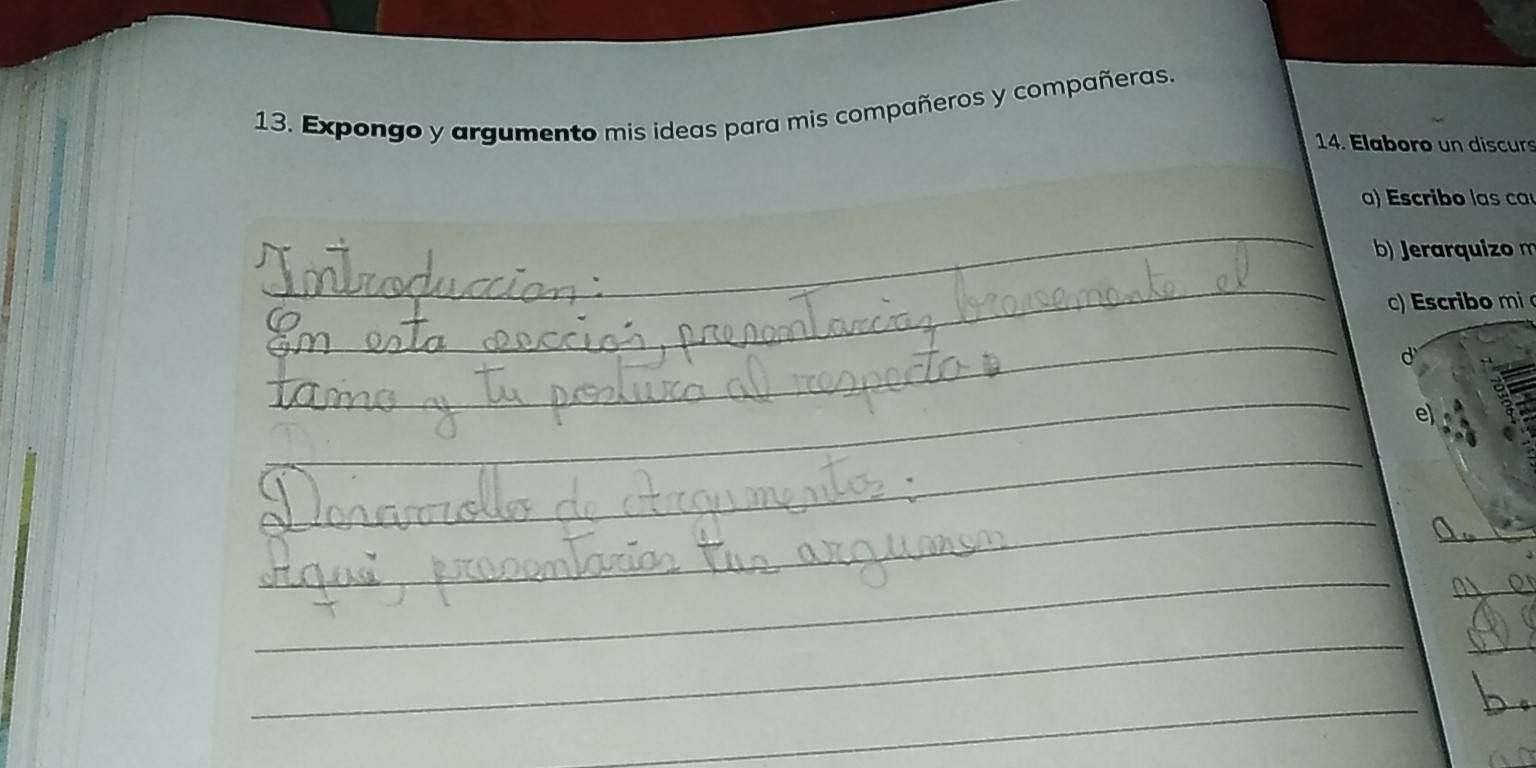 13. Expongo y argumento mis ideas para mis compañeros y compañeras.
Introduccion:
En esta seccion, presentarias brevemente el
tama y tu postura al respecto.
Desarrollo de Argumentos:
Aqui, presentarias tus argumen
14. Elaboro un discurs
a) Escribo las cau
b) Jerarquizo m
c) Escribo mi
d)
e)
a.
b.